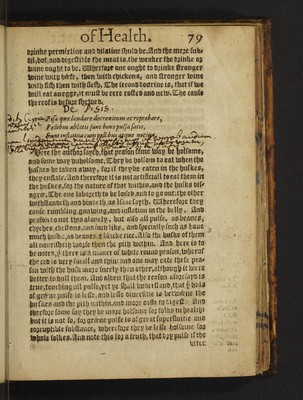 of Health. 79
drinke permixtive and dilative should be. And the more sub-
til, hot, and digestible the meat is, the weaker the drinke or
wine ought to be. Wherfore one ought to drinke stronger
wine with befe, then with chickens, and stronger wine
with flesh then with fish. The second doctrine is, that if we
will eat an egge, it must be rere rosted and new. The cause
thereof is before shewed.
De Pisis.
Pisa que laudare decrevimus ac reprobare,
Pellibus ablatis sunt bona pisa satis,
Sunt inflativa cum pellibus atque nociva.
Here the author sayth, that peason some way be holsome,
and some way unholsome. They be holsom to eat when the
huskes be taken away, for if they be eaten in the huskes,
they enflate. And therefore it is not so utile to eat them in
the huskes, for the nature of that within, and the huskes dis-
agree. The one laboreth to be losed, and to go out, the other
withstandeth and bindeth as Isaac sayth. Wherefore they
cause rumbling, gnawing, and inflation in the belly. And
peason do not this alonely, but also all pulse, as beanes,
chyches, chestons, and such like, and specially such as have
much huske, as beanes, & blacke rice. Also the huske of them
all nourisheth worse then the pith within. And here is to
be noted, that there is a maner of white round peason, wherof
the cod is very small and thin: and one may eate these pea-
son with the husk more surely then other, although it were
better to hull them. And albeit that the reason aforesayd is
true, touching all pulse, yet ye shall understand, that the huls
of greene pulse is lesse, and lesse diversitie is betweene the
huskes and the pith within, and more easie to digest. And
therefore some say they be more holsome for folks in health:
but it is not so, for greene pulse is of great superfluitie and
corruptible substance, wherefore they be lesse holsome for
whole folkes. And note this for a truth, that dry pulse if the
utter